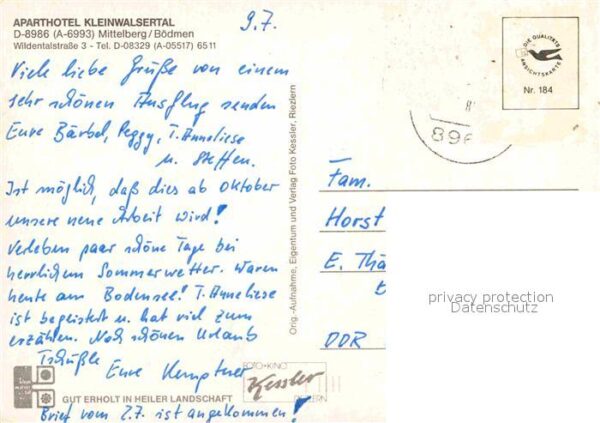 APARTHOTEL KLEINWALSERTAL
D-8986 (A-6993) Mittelberg/Bödmen
Wildentalstraße 3 - Tel. D-08329 (A-05517) 65 11
9.7.
Viele liebe Grüße von einem
sehr schönen Ausflug senden
Eure Bärbel, Peggy, T. Anneliese
u. Steffen.
Ist möglich, daß dies ab Oktober
unsere neue Arbeit wird!
Verleben paar schöne Tage bei
herrlichem Sommerwetter. Waren
heute am Bodensee! T. Anneliese
ist begeistert u. hat viel zum
erzählen. Noch schönen Urlaub
Tschüßle
Eure Kemptner
GUT ERHOLT IN HEILER LANDSCHAFT
Brief vom 2.7. ist angekommen!
Orig.-Aufnahme, Eigentum und Verlag Foto Kessler, Riezlern
FOTO+KINO
Kessler
RIEZLERN
DIE QUALITÄTS
ANSICHTSKARTE
Nr. 184
896
Fam.
Horst
E. Thä
DDR
privacy protection
Datenschutz